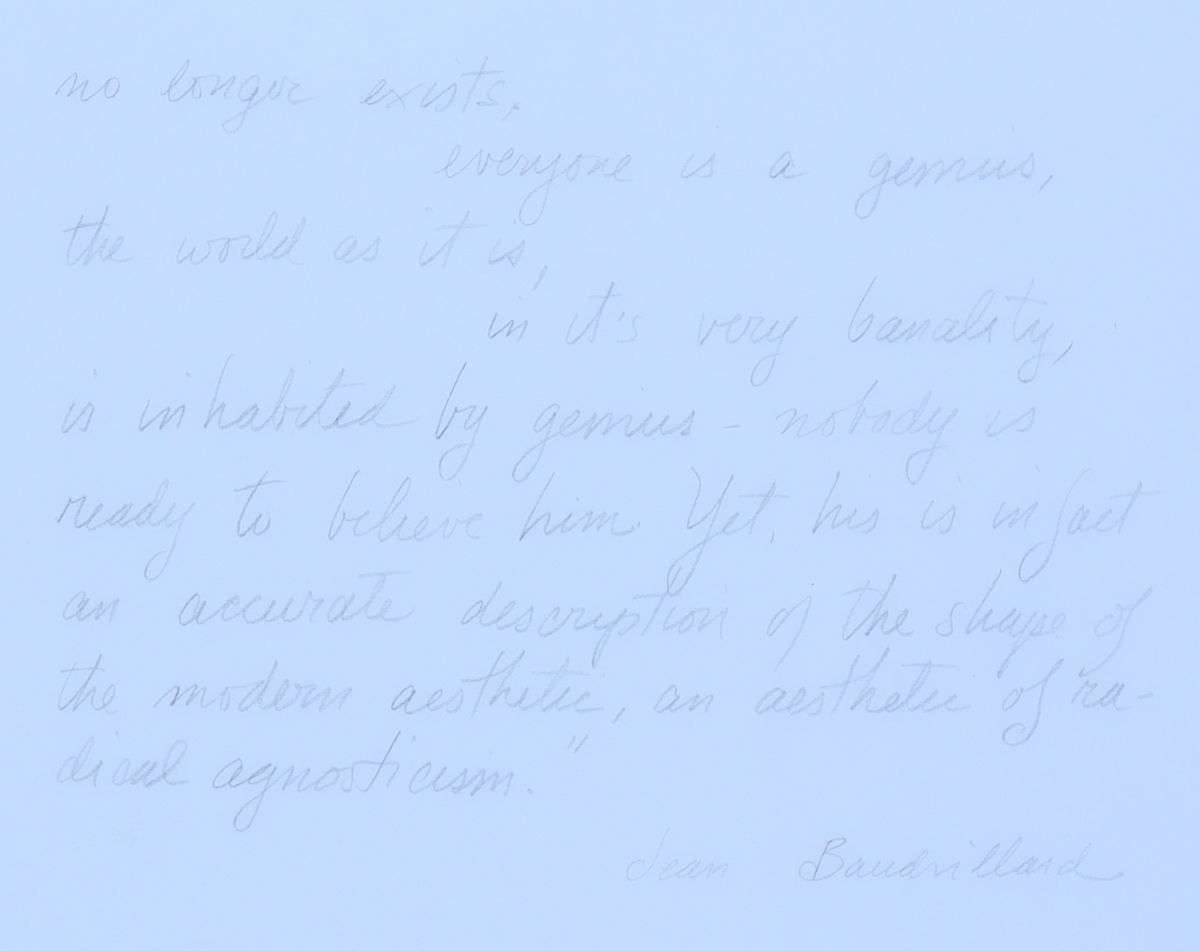 no longer exists,
everyone is a genius,
the world as it is,
in it's very banality,
is inhabited by genius - nobody is
ready to believe him. Yet, his is in fact
an accurate description of the shape of
the modern aesthetic, an aesthetic of ra-
dical agnosticism."
Jean Baudrillard